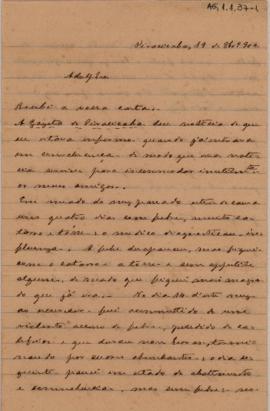 AG.1.1.37-1
Piracicaba, 19 de
Adolpho
Recebi a vossa carta.
A Gazeta de Piracicaba deu noticia de que
eu estava enfermo quando já entrava
em convalescença. De modo que essa noti-
cia serviu para incommodar
os meus amigos.
Em meado do mez passado estive de cama
uns quatro dias com febre, muito ca-
tarro e tosse: o medico diagnosticou in-
fluenza. A febre desapareceu, mas fiquei
com o catarro a tosse e sem appetite
algum, de modo que fiquei mais magro
do que já era. No dia 10 d'este mez
ao escurecer fui accommettido de um
violento accesso de febre, precedido de ca-
lafrios e que durou horas, termi-
nando por suores abundantes: o dia se-
guinte passei em estado de abatimento
e somnolencia, mas sem febre: